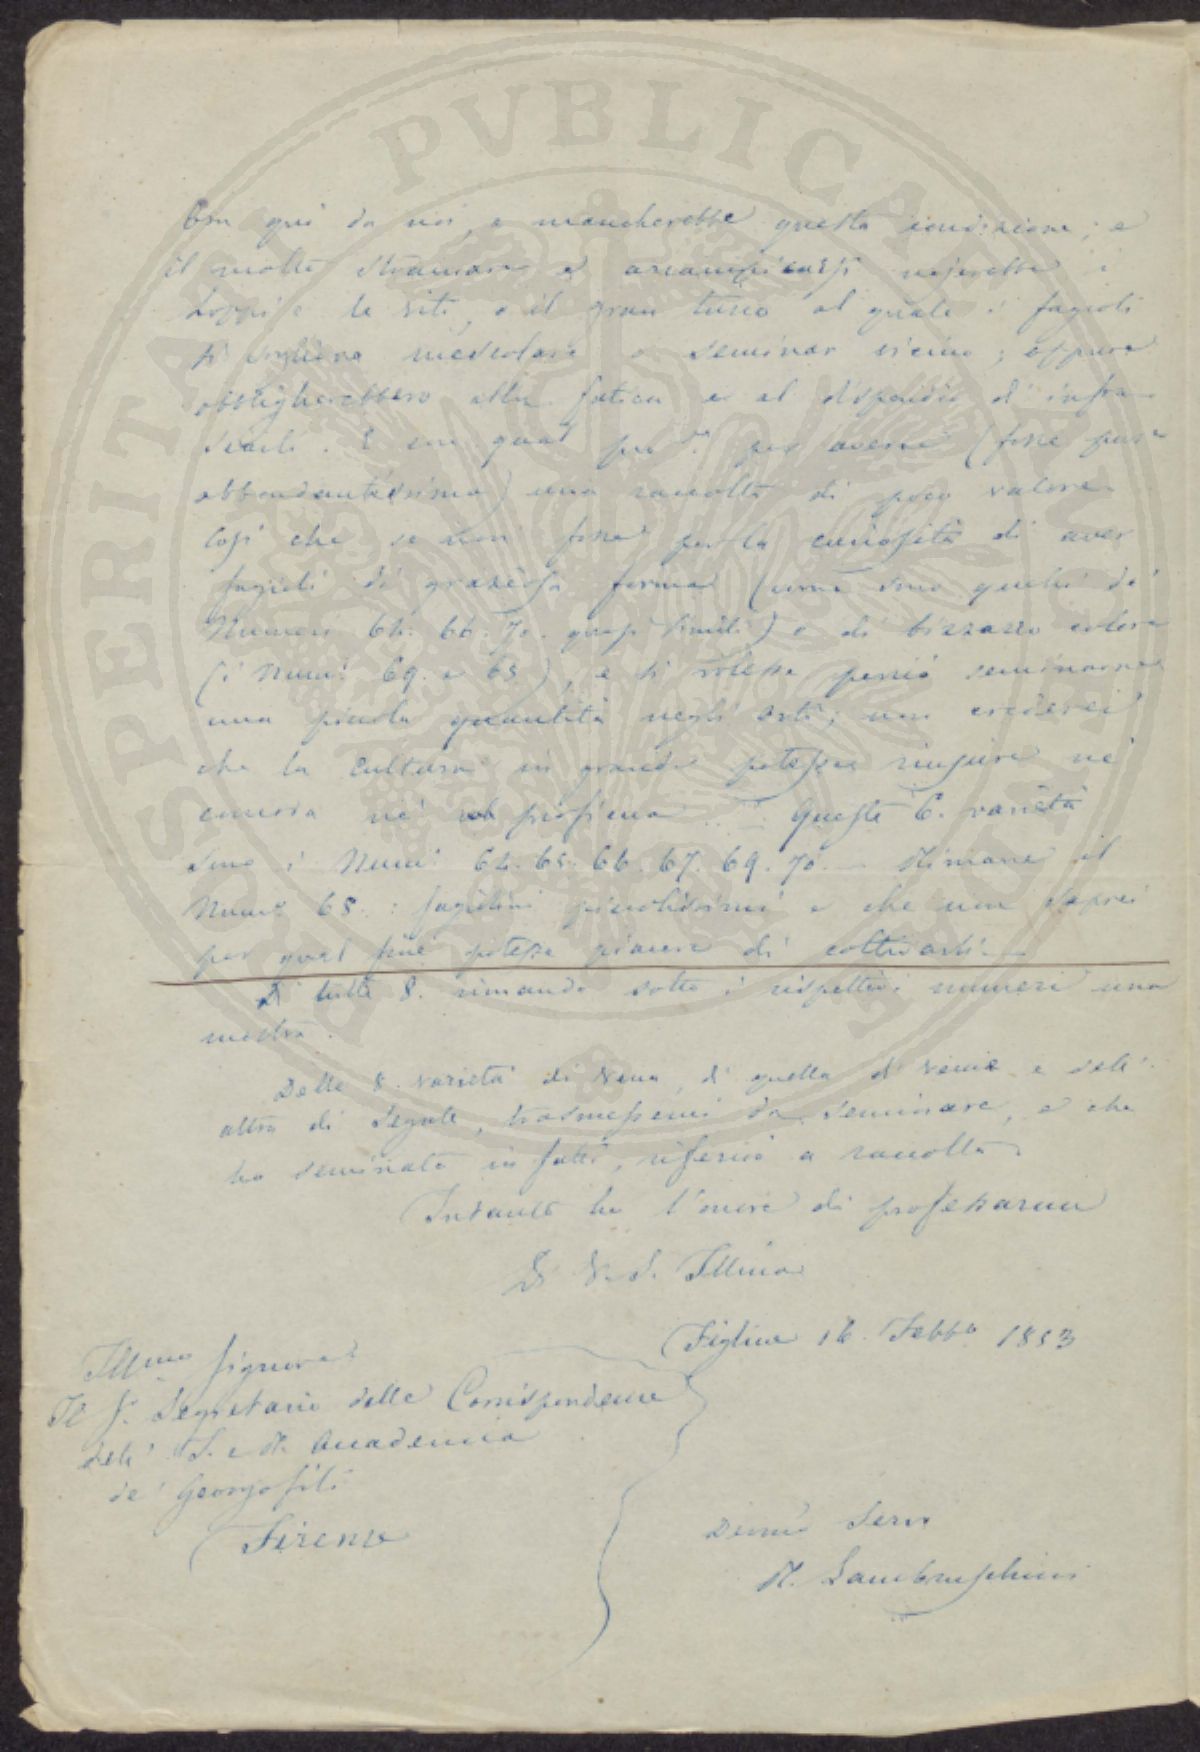 Ora qui da noi, o mancherebbe questa condizione; e
il molto stramare e arrampicarsi nojerebbe i
loppi e le viti, o il gran turco al quale i fagioli
si vogliono mescolare o seminar vicino; oppure
obbligherebbero alla fatica e al dispendio d'infra
scarli. E con qual pro? per averne (fosse pure
abbondantissima) una raccolta di poco valore.
Così che se non fosse per la curiosità di aver
fagioli di graziosa forma (come sono quelli dei
Numeri 64. 66. 70. quasi simili) o di bizzarro colore
(i Num.i 69. e 65), e si volesse perciò seminarne
una piccola quantità negli orti; non crederei
che la cultura in grande potesse riuscire nè
comoda nè proficua. — Queste 6. varietà
sono i Num.i 64. 65. 66. 67. 69. 70. — Rimane il
Num.o 68.: fagiolini piccolissimi e che non saprei
per qual fine potesse piacere di coltivarli. —
Di tutte 8. rimando sotto i rispettivi numeri una
mostra.
Delle 8. varietà di Vena, di quella di Vecce e dell'
altra di Segale, trasmessemi da seminare, e che
ho seminate in fatti, riferirò a raccolta.
Intanto ho l'onore di professarmi
Di V. S. Illma
Figline 16. Febb.o 1853
Illmo Signore
Il S.r Segretario delle Corrispondenze
dell' I. e R. Accademia
de' Georgofili
Firenze
Devmo Serv
R. Lambruschini
PROSPERITATI PUBLICAE AUGENDAE